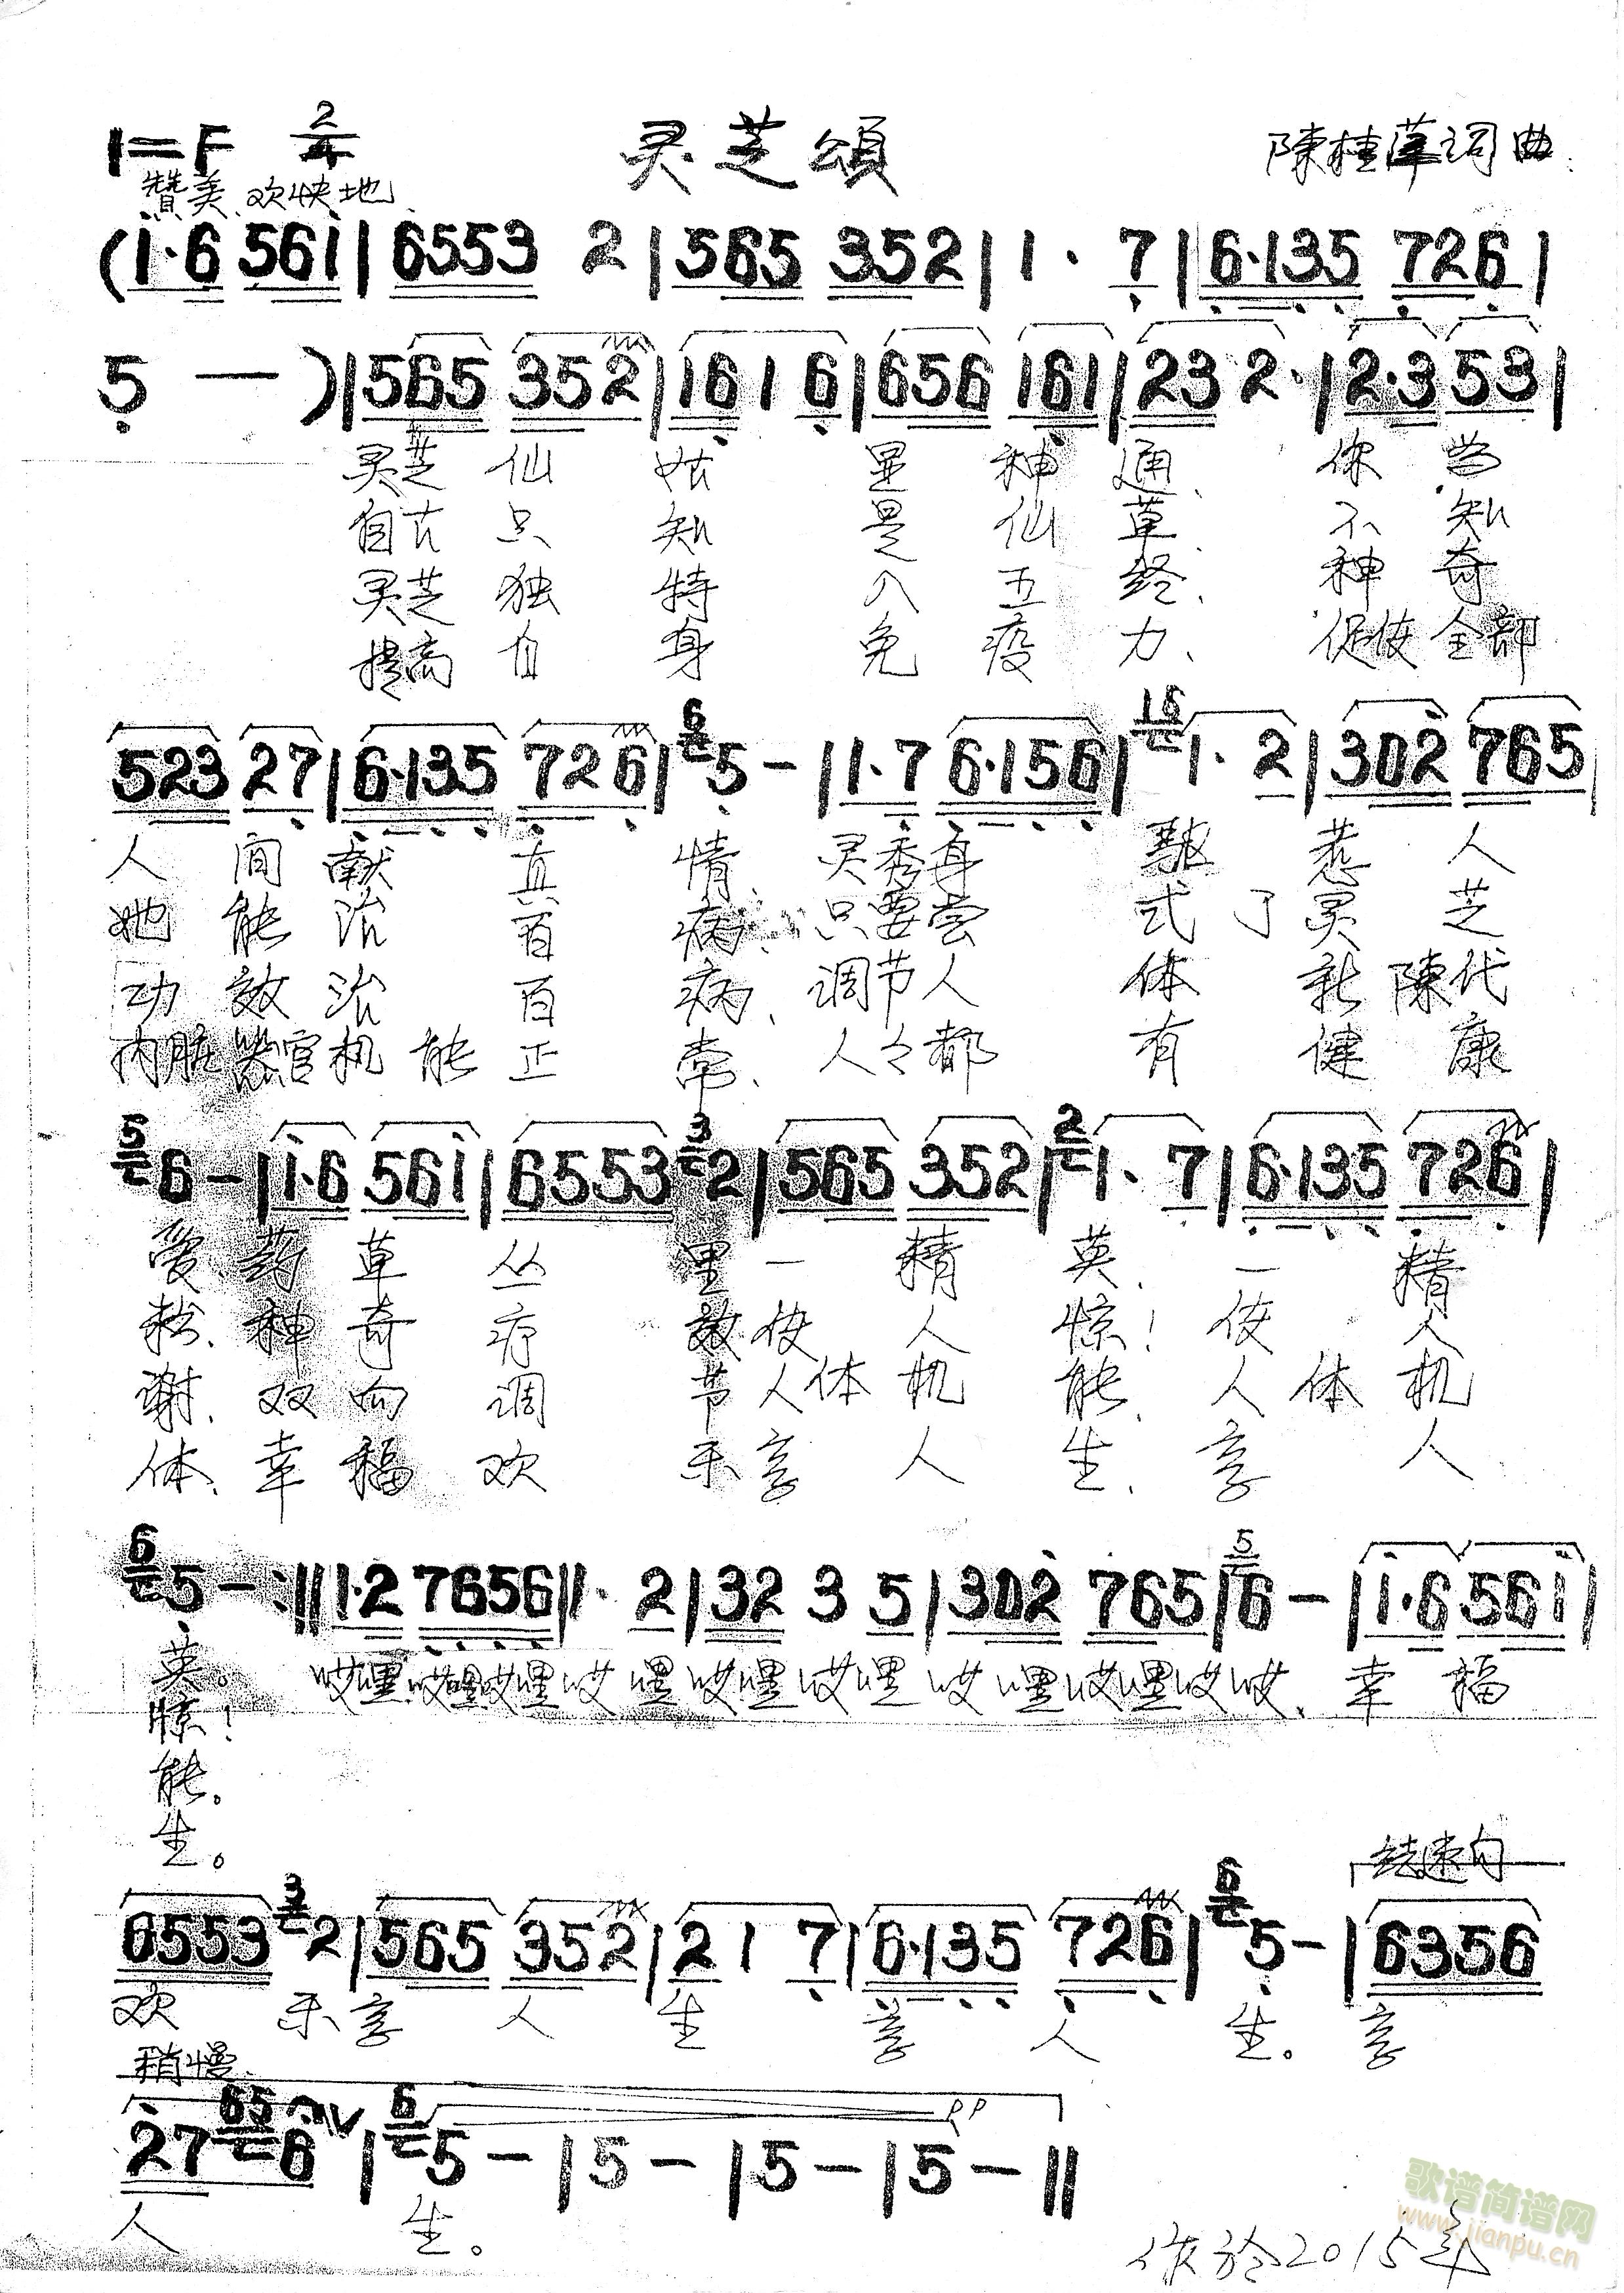 1=F 2/4 灵芝頌 陳桂萍词曲
赞美、欢快地
(i·6 56i | 6553 2 | 565 352 | 1· 7 | 6·135 726 |
5 — ) | 565 352 | 16 1 6 | 656 161 | 23 2· | 2·3 53 |
灵芝 仙 姑 显 神 通、 你 为
自古 只 知 是 仙 草、 不 知
灵芝 独 特 入 五 经、 神 奇
提高 自 身 免 疫 力、 促使 全部
523 27 | 6·135 726 | 6 5 — | 1·7 6·156 | 16 1· 2 | 302 765
人 间 献 真 情、 灵秀身 躯 惹 人
她 能 治 百 病、 只要尝 式 了 灵 芝
功 效 治 百 病、 调节人 体 新 陳代
内脏器官机 能 正 常、 人々都 有 健 康
5 6 — | i·6 56i | 6553 3 2 | 565 352 | 2 1· 7 | 6·135 726 |
爱、药 草 丛 里 一 精 英、 一 精
松、神 奇 疗 效 使 人 惊! 使 人
谢、双 向 调 节 人体 机 能、 人 体 机
体、幸 福 欢 乐 享 人 生、 享 人
6 5 — :‖ 1·2 7656 | 1· 2 | 32 3 5 | 302 765 | 5 6 — | i·6 56i |
英。 哎嘿 哎嘿哎嘿 哎 嘿 哎 嘿 哎 嘿 哎 嘿 哎 嘿 哎 哎、 幸 福
惊!
能。
生。
结速句
6553 3 2 | 565 352 | 2 1 7 | 6·135 726 | 6 5 — | 6356
欢 乐享 人 生 享 人 生。 享
稍慢
27 65 6 V | 6 5 — | 5 — | 5 — | 5 — ‖
pp
人 生。
作於2015年
歌谱简谱网
www.jianpu.cn